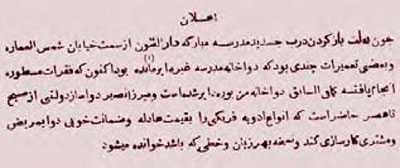 اعلان
چون بعلت باز کردن درب جدید مدرسه مبارکه دارالفنون از سمت خیابان شمس العماره
و بعضی تعمیرات چندی بود که دواخانه مدرسه غیر دایر مانده (۱) بود اکنون که فقرات مسطوره
انجام یافته کمافی السابق دواخانه من بوره دایر شده است و میرزا نصیر دواساز دولتی از صبح
تا عصر حاضر است که انواع ادویه فرنگی را بقیمت عادله و ضمانت خوبی دوا بمریض
و مشتری کارسازی کند و نسخه بهر زبان و خطی که باشد خوانده میشود